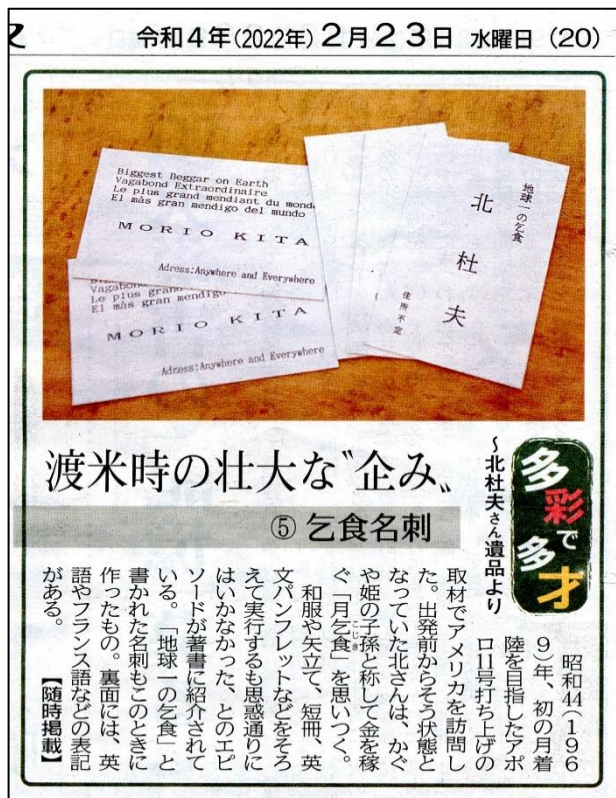 令和4年(2022年)2月23日 水曜日 (20)
Biggest Beggar on Earth
Vagabond Extraordinaire
Le plus grand mendiant du monde
El más gran mendigo del mundo
MORIO KITA
Adress:Anywhere and Everywhere
Vagabond
Le plus grand
El más gran mendigo
MORIO KITA
Adress:Anywhere and Everywhere
地球一の乞食
北杜夫
住所不定
多彩で多才
〜北杜夫さん遺品より
渡米時の壮大な〝企み〟
⑤ 乞食名刺
昭和44(196
9)年、初の月着
陸を目指したアポ
ロ11号打ち上げの
取材でアメリカを訪問し
た。出発前からそう状態と
なっていた北さんは、かぐ
や姫の子孫と称して金を稼
ぐ「月乞食こじき」を思いつく。
和服や矢立て、短冊、英
文パンフレットなどをそろ
えて実行するも思惑通りに
はいかなかった、とのエピ
ソードが著書に紹介されて
いる。「地球一の乞食」と
書かれた名刺もこのときに
作ったもの。裏面には、英
語やフランス語などの表記
がある。
【随時掲載】